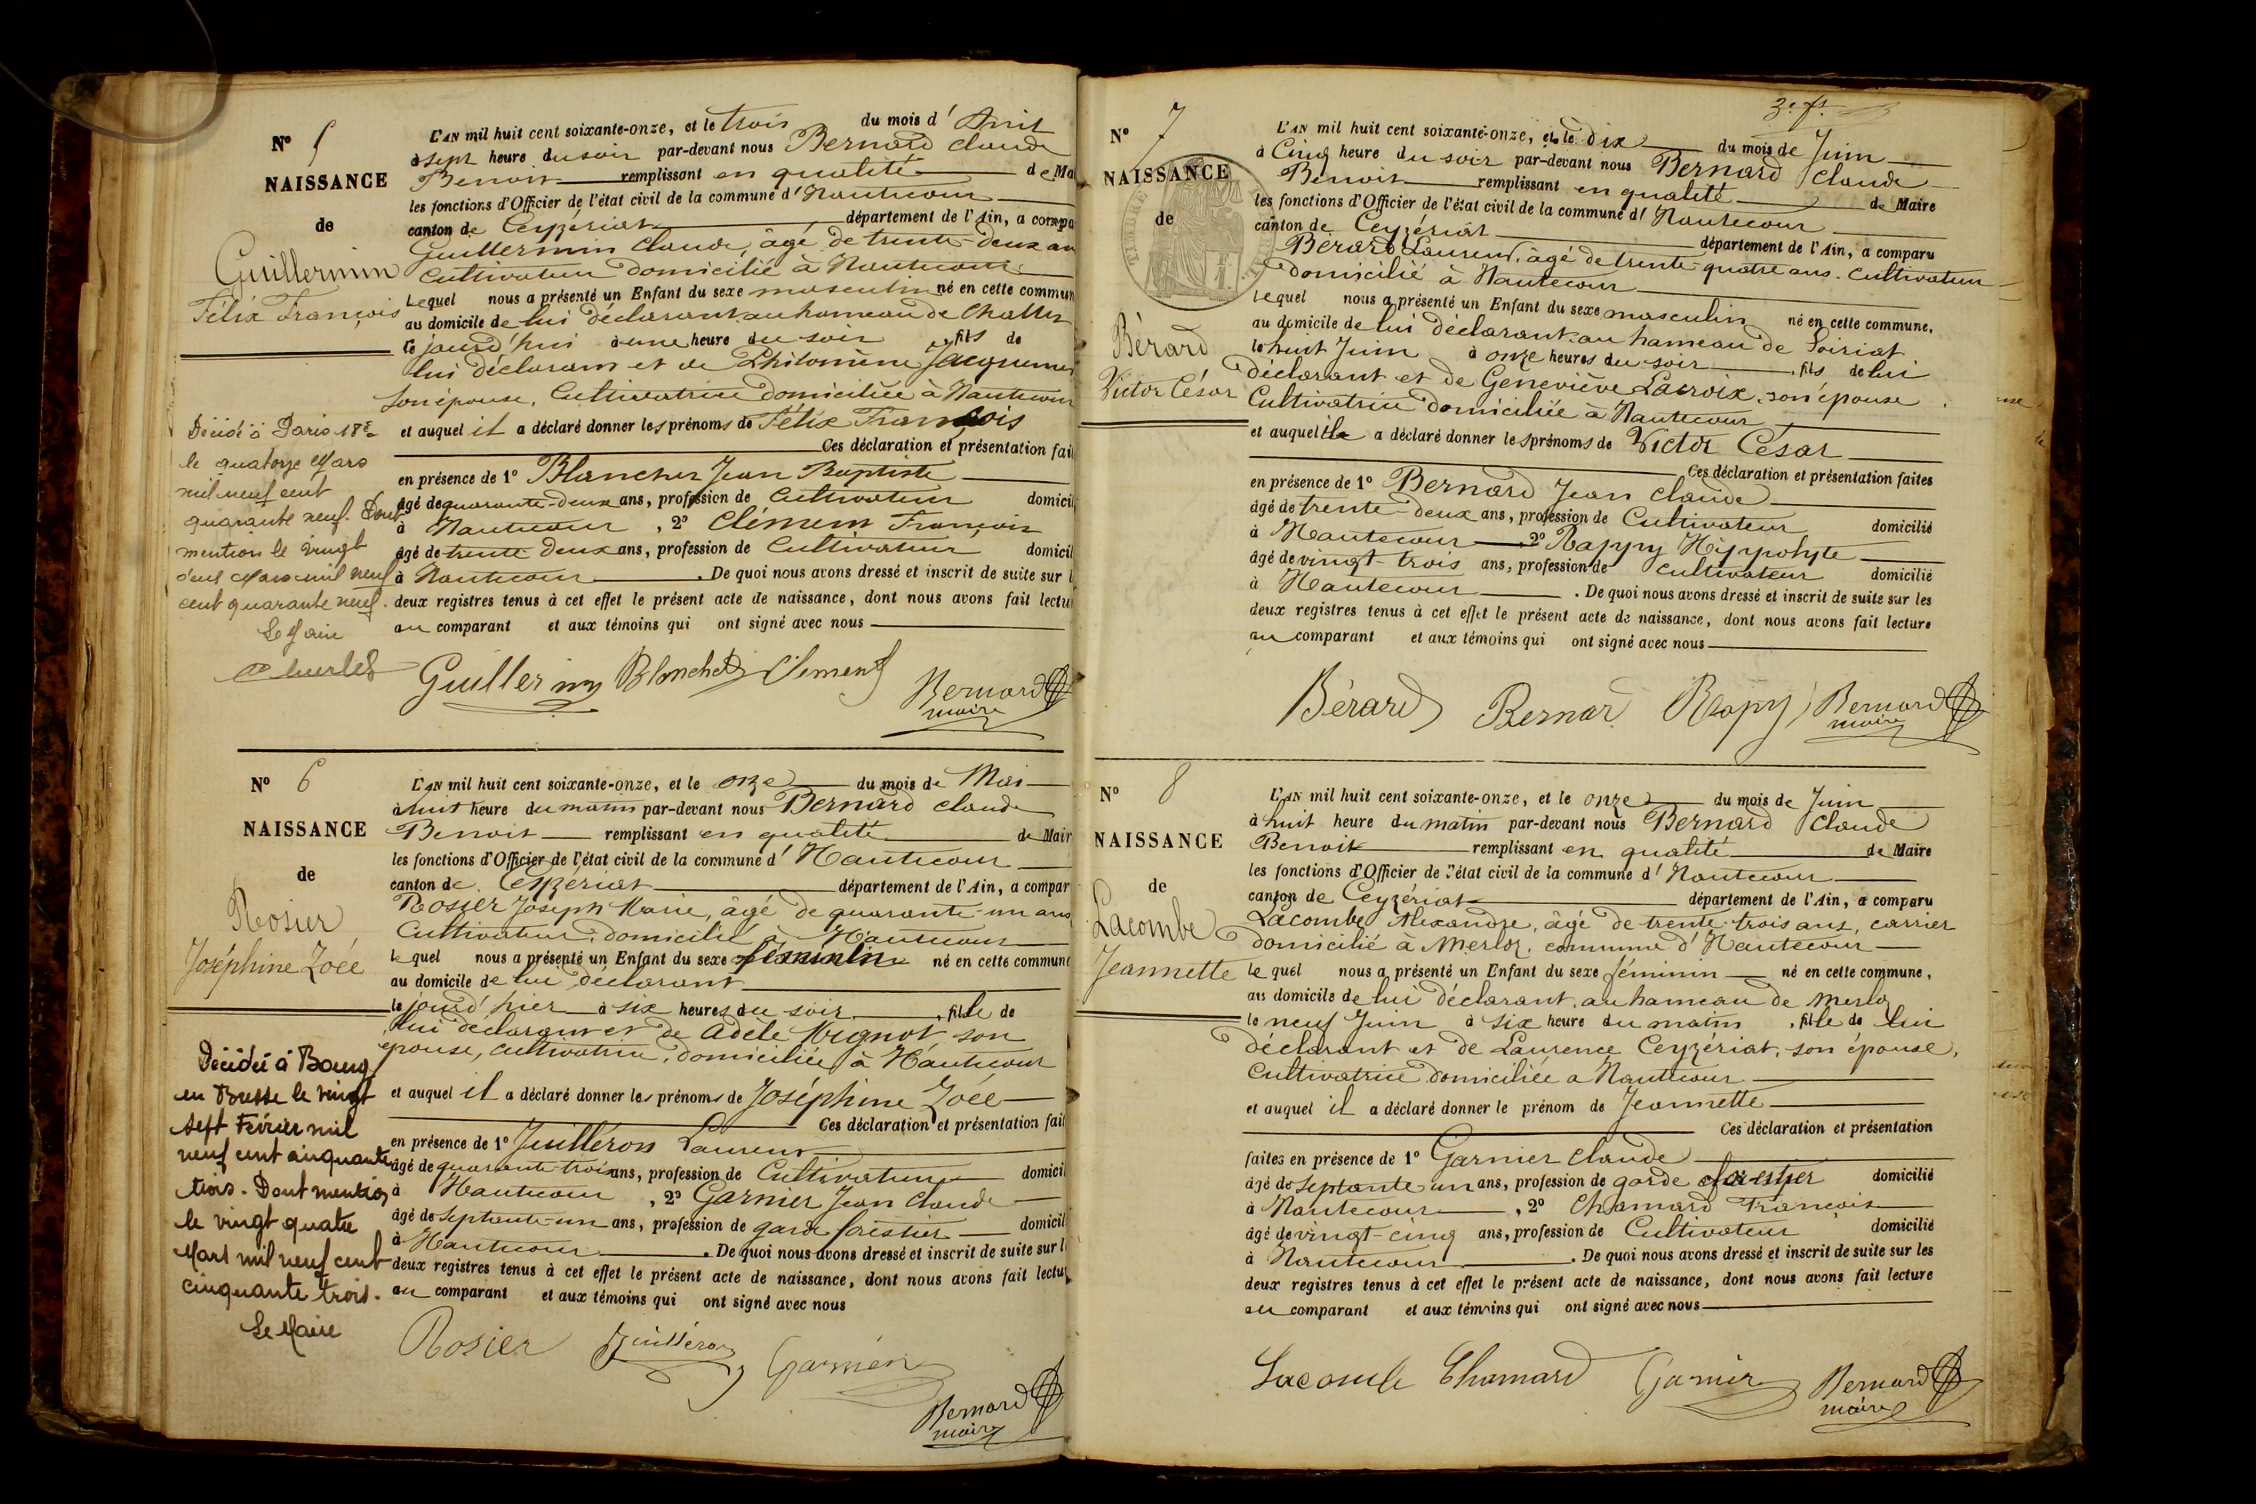 N° 5
NAISSANCE
de
Guillermin
Félix François
Décédé à Paris 18e
le quatorze Mars
mil neuf cent
quarante neuf. Dont
mention le vingt
deux Mars mil neuf
cent quarante neuf.
Le Maire
L'AN mil huit cent soixante-onze, et le trois du mois d' Avril
à sept heure du soir par-devant nous Bernard Claude
Benoit remplissant en qualité de Ma
les fonctions d'Officier de l'état civil de la commune d' Hautecour
canton de Ceyzériat département de l'Ain, a compa
Guillermin Claude, âgé de trente-deux an
Cultivateur domicilié à Hautecour
lequel nous a présenté un Enfant du sexe masculin né en cette commun
au domicile de lui déclarant au hameau de
le jourd'hui à une heure du soir , fils de
lui déclarant et de Philomène
son épouse, Cultivatrice domiciliée à Hautecour
et auquel il a déclaré donner les prénoms de Félix François
Ces déclaration et présentation fai
en présence de 1° Blanchet Jean Baptiste
âgé de quarante-deux ans, profession de Cultivateur domicil
à Hautecour , 2° Clément François
âgé de trente deux ans, profession de Cultivateur domicil
à Hautecour . De quoi nous avons dressé et inscrit de suite sur l
deux registres tenus à cet effet le présent acte de naissance, dont nous avons fait lectu
au comparant et aux témoins qui ont signé avec nous
Guillermin Blanchet Clément Bernard
maire
N° 6
NAISSANCE
de
Rosier
Joséphine Zoée
Décédée à Bourg
en Bresse le vingt
sept Février mil
neuf cent cinquante
trois. Dont mention
le vingt quatre
Mars mil neuf cent
cinquante trois.
Le Maire
L'AN mil huit cent soixante-onze, et le onze du mois de Mai
à huit heure du matin par-devant nous Bernard Claude
Benoit remplissant en qualité de Mair
les fonctions d'Officier de l'état civil de la commune d' Hautecour
canton de Ceyzériat département de l'Ain, a compar
Rosier Joseph Marie, âgé de quarante-un ans
Cultivateur, domicilié à Hautecour
lequel nous a présenté un Enfant du sexe féminin né en cette commune
au domicile de lui déclarant
le jourd'hier à six heures du soir , fille de
lui déclarant et de Adèle Mignot, son
épouse, cultivatrice, domiciliée à Hautecour
et auquel il a déclaré donner les prénoms de Joséphine Zoée
Ces déclaration et présentation fai
en présence de 1° Juilléron Laurent
âgé de quarante-trois ans, profession de Cultivateur domicil
à Hautecour , 2° Garnier Jean Claude
âgé de septante-un ans, profession de garde forestier domicil
à Hautecour . De quoi nous avons dressé et inscrit de suite sur l
deux registres tenus à cet effet le présent acte de naissance, dont nous avons fait lectu
au comparant et aux témoins qui ont signé avec nous
Rosier Juilléron Garnier
Bernard
maire
3e ft
N° 7
NAISSANCE
de
Bérard
Victor César
L'AN mil huit cent soixante-onze, et le dix du mois de Juin
à Cinq heure du soir par-devant nous Bernard Claude
Benoit remplissant en qualité de Maire
les fonctions d'Officier de l'état civil de la commune d' Hautecour
canton de Ceyzériat département de l'Ain, a comparu
Bérard Laurent, âgé de trente-quatre ans. Cultivateur
domicilié à Hautecour
lequel nous a présenté un Enfant du sexe masculin né en cette commune,
au domicile de lui déclarant au hameau de Soiriat
le huit Juin à onze heures du soir , fils de lui
déclarant et de Geneviève Lacroix, son épouse
Cultivatrice domiciliée à Hautecour
et auquel il a déclaré donner les prénoms de Victor César
Ces déclaration et présentation faites
en présence de 1° Bernard Jean Claude
âgé de trente-deux ans, profession de Cultivateur domicilié
à Hautecour , 2° Rappy Hippolyte
âgé de vingt-trois ans, profession de cultivateur domicilié
à Hautecour . De quoi nous avons dressé et inscrit de suite sur les
deux registres tenus à cet effet le présent acte de naissance, dont nous avons fait lecture
au comparant et aux témoins qui ont signé avec nous
Bérard Bernar Rapy Bernard
maire
N° 8
NAISSANCE
de
Lacombe
Jeannette
L'AN mil huit cent soixante-onze, et le onze du mois de Juin
à huit heure du matin par-devant nous Bernard Claude
Benoit remplissant en qualité de Maire
les fonctions d'Officier de l'état civil de la commune d' Hautecour
canton de Ceyzériat département de l'Ain, a comparu
Lacombe Alexandre, âgé de trente-trois ans, carrier
domicilié à Merloz, commune d'Hautecour
lequel nous a présenté un Enfant du sexe féminin né en cette commune,
au domicile de lui déclarant, au hameau de Merloz
le neuf Juin à six heure du matin , fille de lui
déclarant et de Laurence Ceyzériat, son épouse,
Cultivatrice domiciliée a Hautecour
et auquel il a déclaré donner le prénom de Jeannette
Ces déclaration et présentation
faites en présence de 1° Garnier Claude
âgé de septante un ans, profession de garde forestier domicilié
à Hautecour , 2° Chamard François
âgé de vingt-cinq ans, profession de Cultivateur domicilié
à Hautecour . De quoi nous avons dressé et inscrit de suite sur les
deux registres tenus à cet effet le présent acte de naissance, dont nous avons fait lecture
au comparant et aux témoins qui ont signé avec nous
Lacombe Chamard Garnier Bernard
maire